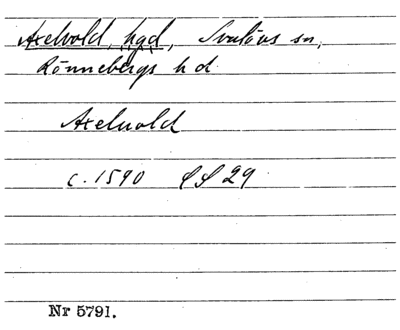 Axelvold, hgd, Svalövs sn,
Rönnebergs hd
Axelvold
c. 1590 SS 29
Nr 5791.